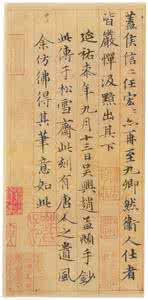 蓋侯信〻任宏〻亦再至九卿然衛人仕者
皆嚴憚汲黯出其下
延祐七年九月十三日吳興趙孟頫手鈔
此傳于松雪齋此刻有唐人之遺風
余仿佛得其筆意如此